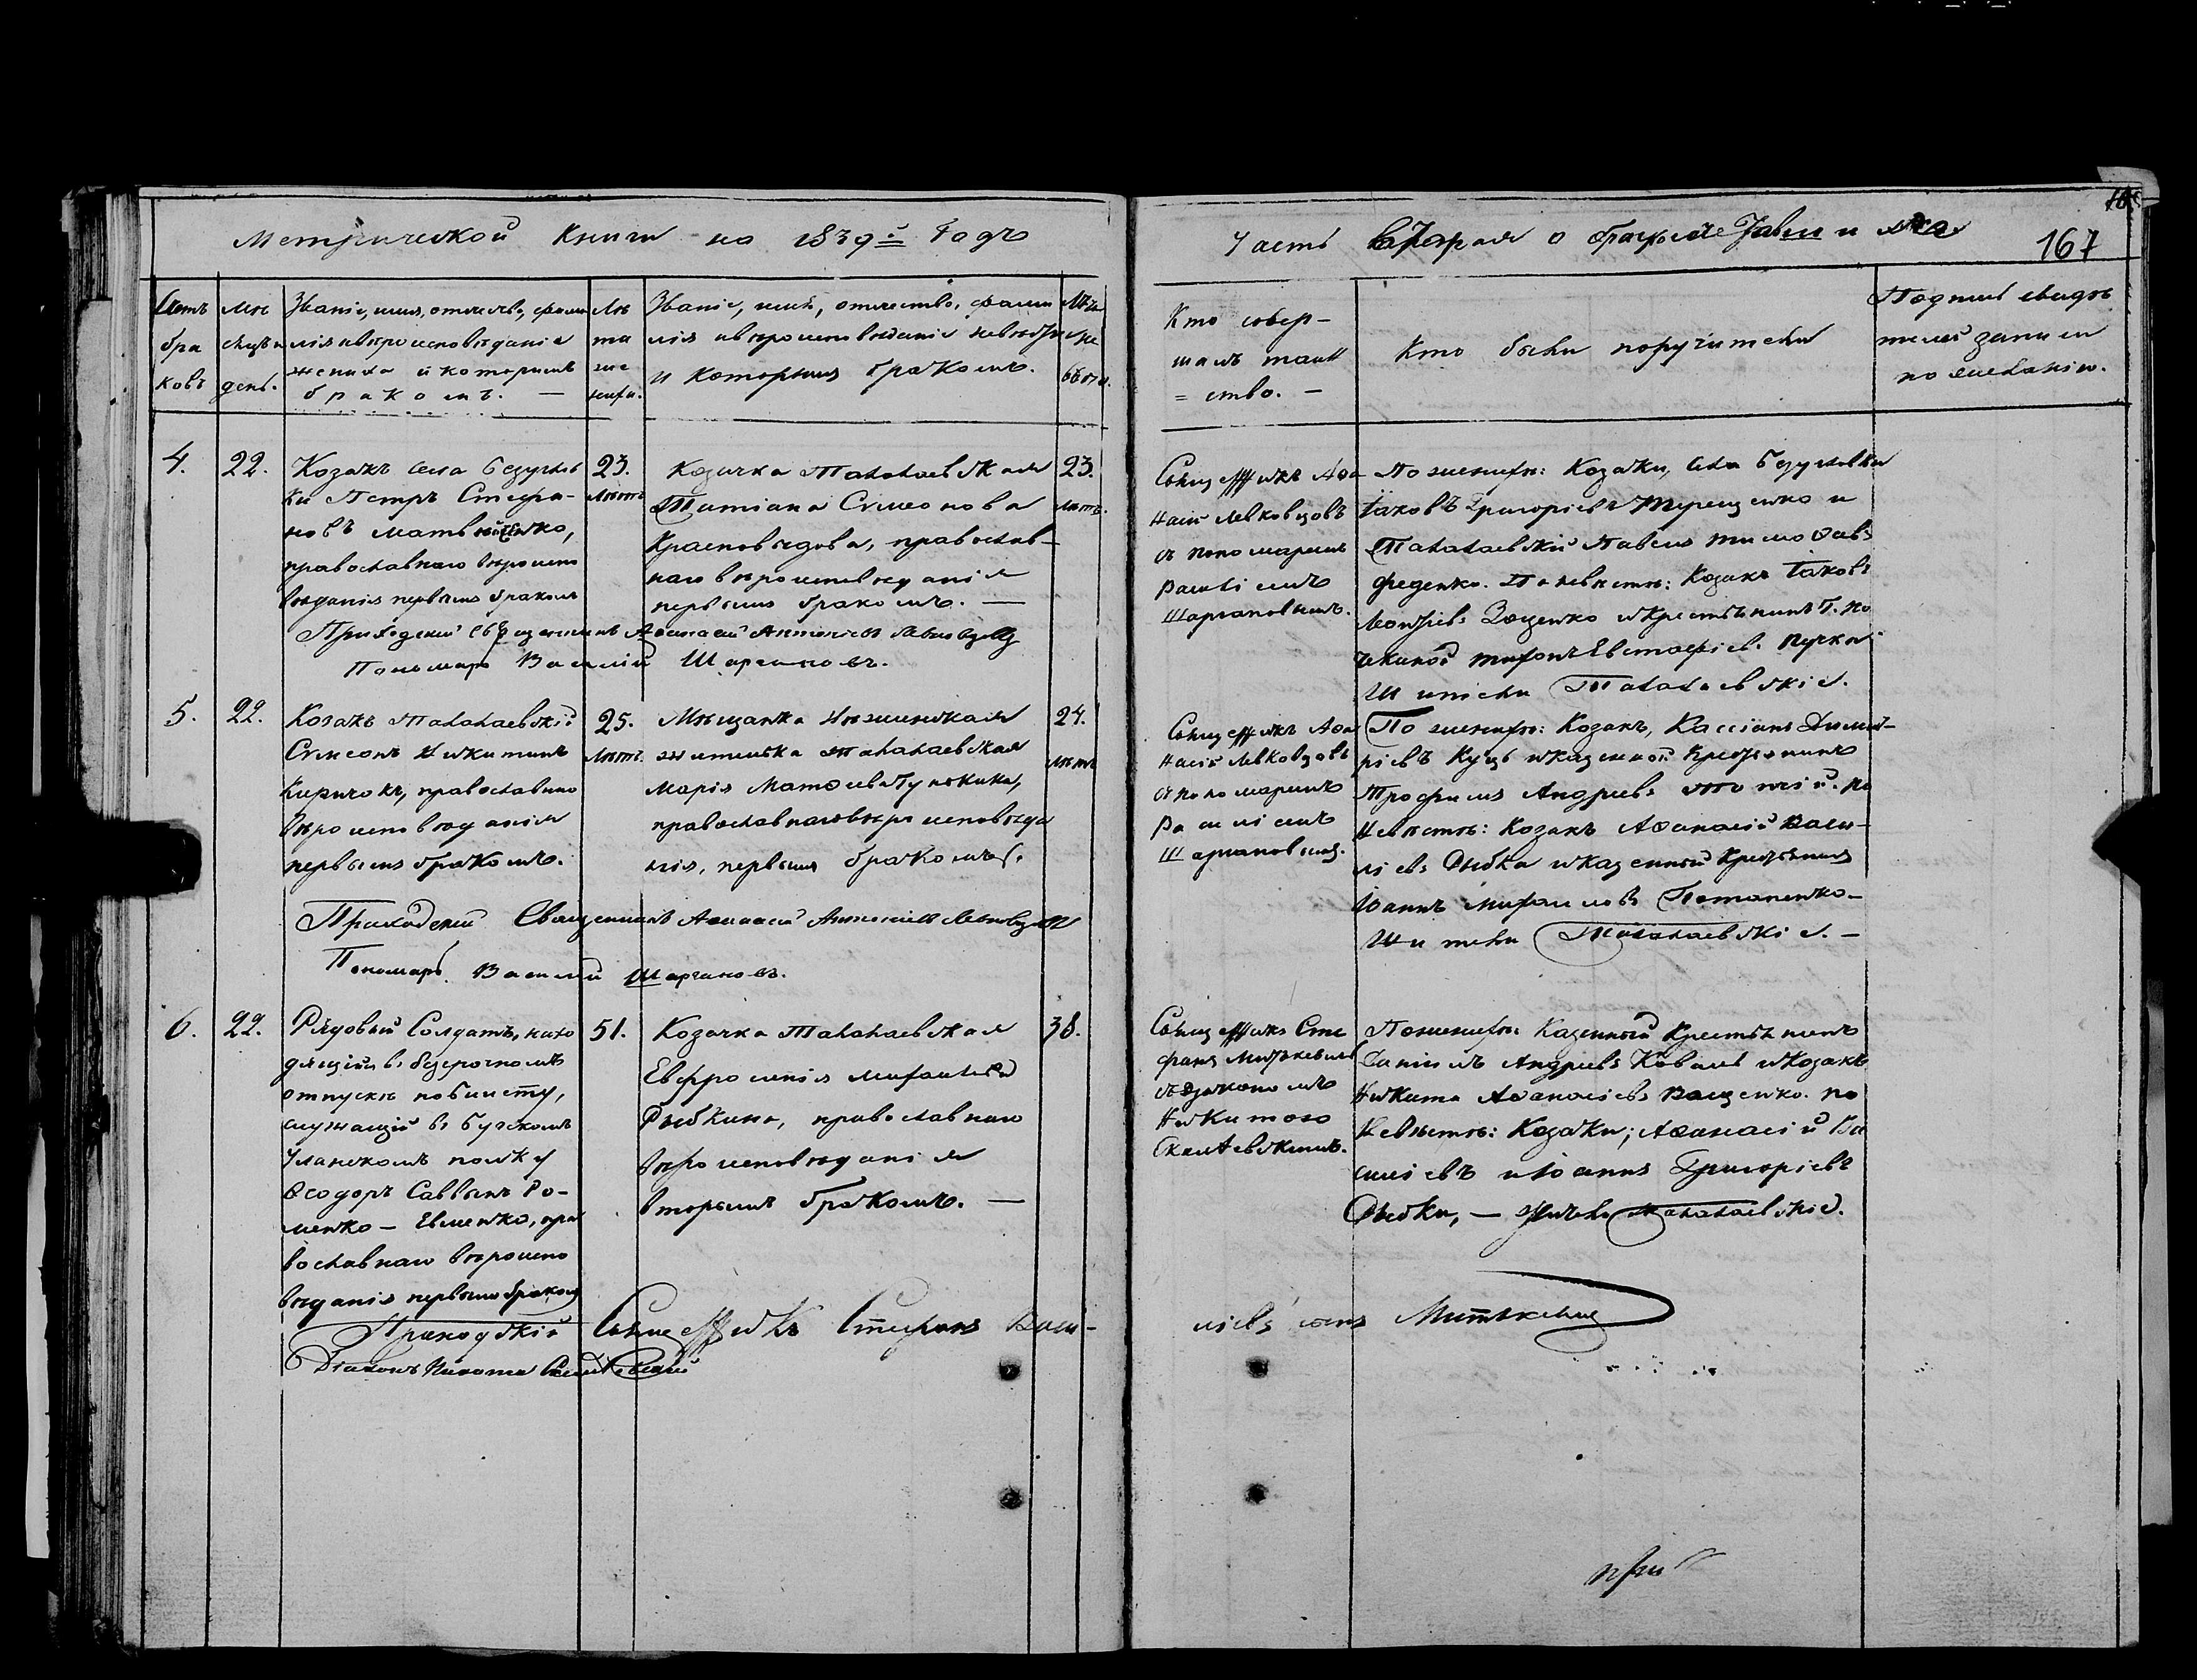 Метрической Книги на 1839й Годъ
Часть вторая о бракосоче
167
Счетъ
бра
ковъ
Мѣ
сяцъ и
день.
Званіе, имя, отчество, фами
лія и вѣроисповѣданіе
жениха и которымъ
бракомъ. —
Лѣ
та
же
ниха.
Званіе, имя, отчество, фами
лія и вѣроисповѣданіе невѣсты
и которымъ бракомъ.
Лѣта
не
вѣсты.
Кто совер-
шалъ таин
= ство. —
Кто были поручители
Подпись свидѣ
телей записи
по желанію.
4.
22.
Козакъ села Безуглов
ки Петръ Стефа-
новъ Матвѣйченко,
православнаго вѣроиспо
вѣданія первымъ бракомъ
23.
лѣтъ
Козачка Талалаевская
Татіана Сѵмеонова
Красновидова, православ-
наго вѣроисповѣданія
первымъ бракомъ. —
23.
лѣтъ.
Священникъ Аѳа
насій Левковцовъ
съ пономаремъ
Василіемъ
Шаргановымъ.
По женихѣ: Козаки, села Безугловки
Іаковъ Григоріевъ Терещенко и
Талалаевскій Павелъ Тимоѳеевъ
Феденко. По невѣстѣ: Козакъ Іаковъ
Леонтіевъ Зощенко и крестьянинъ Г. По
Трифонъ Евстафіевъ
Жители Талалаевскіе.
Приходскій Священникъ Аѳанасій Антоніевъ Левковцовъ
Пономарь Василій Шаргановъ.
5.
22.
Козакъ Талалаевскій
Сѵмеонъ Никитинъ
Кирпичокъ, православнаго
вѣроисповѣданія
первымъ бракомъ.
25.
лѣтъ.
Мѣщанка Нѣжинская
жителька Талалаевская
Марія Матѳіева
православнаго вѣроисповѣда
нія, первымъ бракомъ.
24.
лѣтъ
Священникъ Аѳа
насій Левковцовъ
съ пономаремъ
Василіемъ
Шаргановымъ.
По женихѣ: Козакъ, Кассіанъ Димит-
ріевъ Куцъ и казенной крестьянинъ
Трофимъ Андреевъ По
невѣстѣ: Козакъ Аѳанасій Васи-
ліевъ Рыбка и казенный крестьянинъ
Іоаннъ Михаиловъ Потапенко —
Жители Талалаевскіе. —
Приходскій Священникъ Аѳанасій Антоніевъ Левковцовъ
Пономарь Василій Шаргановъ.
6.
22.
Рядовый Солдатъ, нахо
дящійся въ безсрочномъ
отпуску по билету,
служащій въ Бугскомъ
Уланскомъ полку
Ѳеодоръ Саввинъ Ро-
менко — Евменко, пра
вославнаго вѣроиспо
вѣданія первымъ бракомъ
51.
Козачка Талалаевская
Евфросинія Михаилова
Рыбкина, православнаго
вѣроисповѣданія
вторымъ бракомъ. —
38.
Священникъ Сте
фанъ Митькевичъ
съ діакономъ
Никитою
По женихѣ: Казенный Крестьянинъ
Даніилъ Андреевъ Коваль и козакъ
Никита Аѳанасіевъ Ващенко. По
невѣстѣ: Козаки; Аѳанасій Ва
силіевъ и Іоаннъ Григоріевъ
Рыбки, — жители Талалаевскіе.
Приходскій Священникъ Стефанъ Васи-
ліевъ сынъ Митькевичъ
Діаконъ Никита